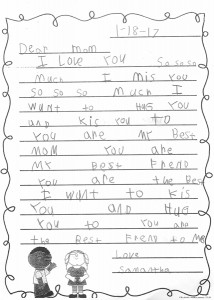 1-18-17
Dear mom
I Love You So so so
Much I mis you
So so so Much I
Wunt to Hug You
and kis you to
You are Mr Best
Mom You are
Mr Best Friend
You are the Best
I wunt to kis
You and Hug
You to You are
the Best Friend to Me
Love
Samantha